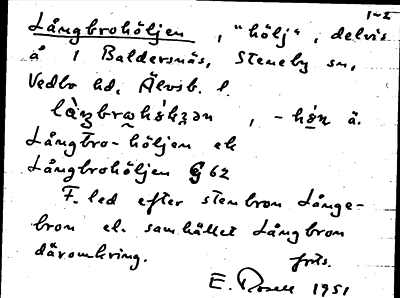 1-2
Långbrohöljen, "hölj", delvis
å 1 Baldersnäs, Steneby sn,
Vedbo hd, Älvsb. l.
, - ä.
Långbro-höljen ek
Långbrohöljen G 62
F. led efter stenbron Långe-
bron el. samhället Långbron
däromkring. forts.
E. Rosell 1951